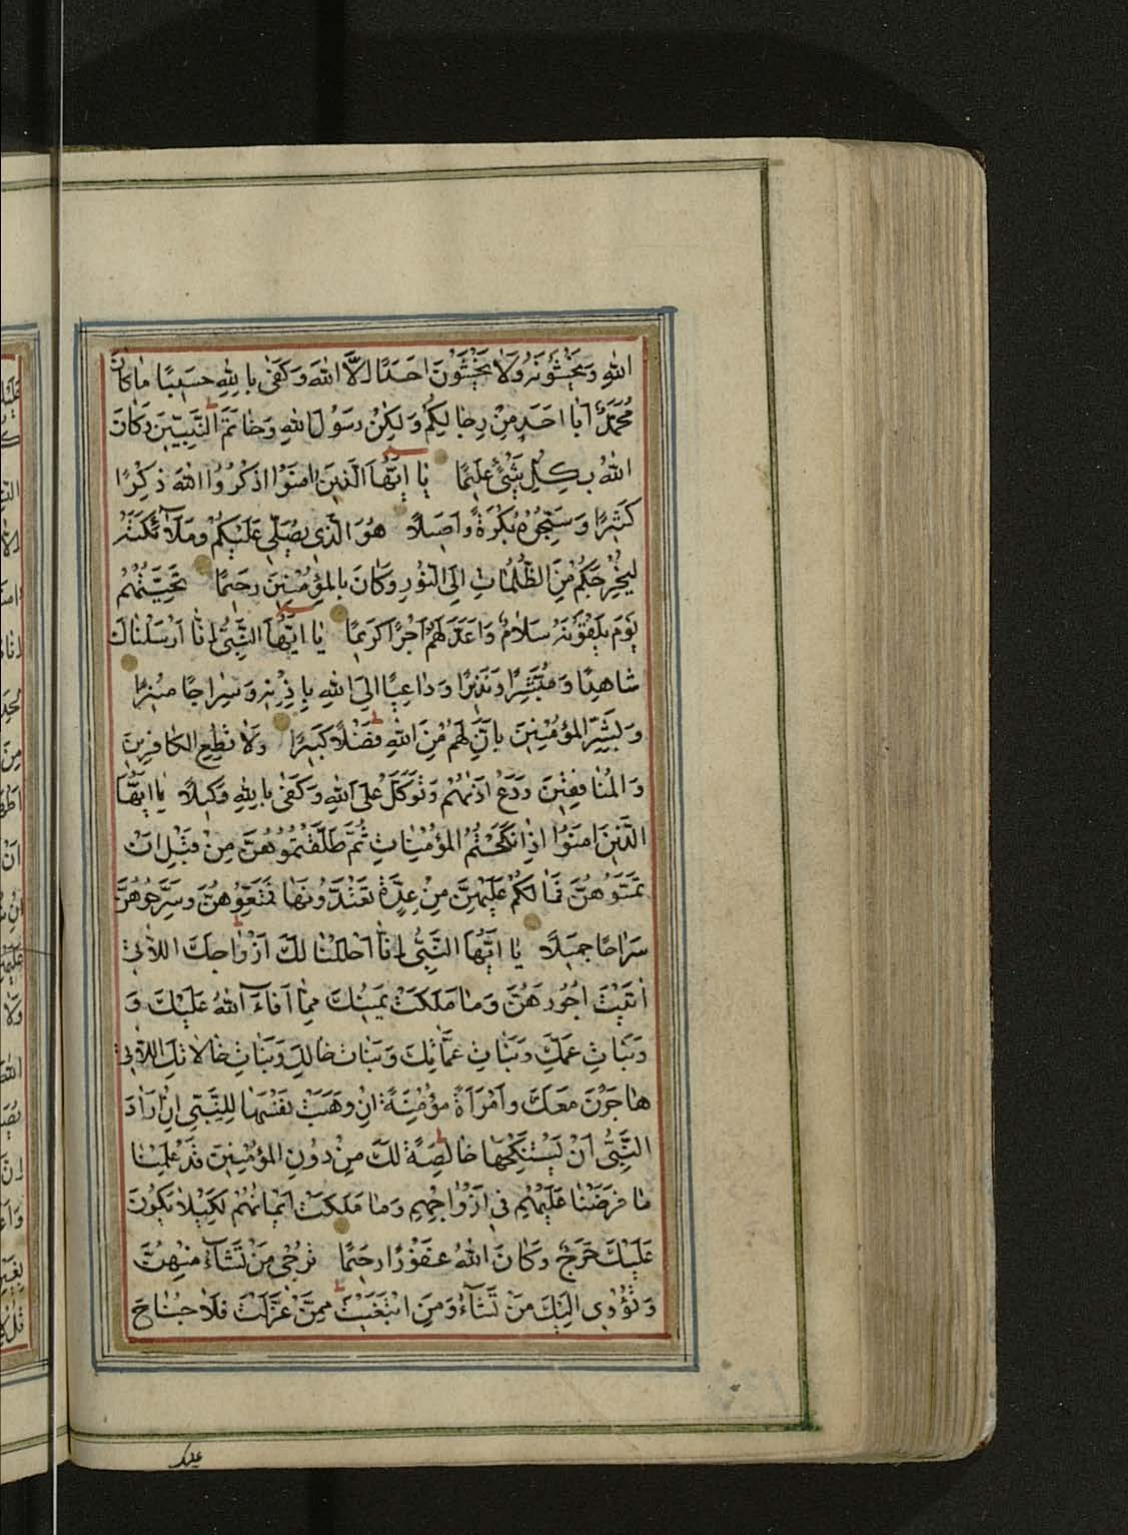 اللهِ وَيَخْشَوْنَهُ وَلَا يَخْشَوْنَ اَحَدًا اِلَّا اللهَ وَكَفىٰ بِاللهِ حَسِيبًا مَا كَانَ
مُحَمَّدٌ اَبَا اَحَدٍ مِنْ رِجَالِكُمْ وَلٰكِنْ رَسُولَ اللهِ وَخَاتَمَ النَّبِيِّينَ وَكَانَ
اللهُ بِكُلِّ شَيْئٍ عَلِيمًا يَا اَيُّهَا الَّذِينَ اٰمَنُوا اذْكُرُوا اللهَ ذِكْرًا
كَثِيرًا وَسَبِّحُوهُ بُكْرَةً وَاَصِيلًا هُوَ الَّذِي يُصَلِّي عَلَيْكُمْ وَمَلَآئِكَتُهُ
لِيُخْرِجَكُمْ مِنَ الظُّلُمَاتِ اِلَى النُّورِ وَكَانَ بِالْمُؤْمِنِينَ رَحِيمًا تَحِيَّتُهُمْ
يَوْمَ يَلْقَوْنَهُ سَلَامٌ وَاَعَدَّ لَهُمْ اَجْرًا كَرِيمًا يَا اَيُّهَا النَّبِيُّ اِنَّا اَرْسَلْنَاكَ
شَاهِدًا وَمُبَشِّرًا وَنَذِيرًا وَدَاعِيًا اِلَى اللهِ بِاِذْنِهِ وَسِرَاجًا مُنِيرًا
وَبَشِّرِ الْمُؤْمِنِينَ بِاَنَّ لَهُمْ مِنَ اللهِ فَضْلًا كَبِيرًا وَلَا تُطِعِ الْكَافِرِينَ
وَالْمُنَافِقِينَ وَدَعْ اَذٰيهُمْ وَتَوَكَّلْ عَلَى اللهِ وَكَفىٰ بِاللهِ وَكِيلًا يَا اَيُّهَا
الَّذِينَ اٰمَنُوا اِذَا نَكَحْتُمُ الْمُؤْمِنَاتِ ثُمَّ طَلَّقْتُمُوهُنَّ مِنْ قَبْلِ اَنْ
تَمَسُّوهُنَّ فَمَا لَكُمْ عَلَيْهِنَّ مِنْ عِدَّةٍ تَعْتَدُّونَهَا فَمَتِّعُوهُنَّ وَسَرِّحُوهُنَّ
سَرَاحًا جَمِيلًا يَا اَيُّهَا النَّبِيُّ اِنَّا اَحْلَلْنَا لَكَ اَزْوَاجَكَ اللَّاتِي
اٰتَيْتَ اُجُورَهُنَّ وَمَا مَلَكَتْ يَمِينُكَ مِمَّا اَفَآءَ اللهُ عَلَيْكَ وَ
وَبَنَاتِ عَمِّكَ وَبَنَاتِ عَمَّاتِكَ وَبَنَاتِ خَالِكَ وَبَنَاتِ خَالَاتِكَ اللَّاتِي
هَاجَرْنَ مَعَكَ وَامْرَاَةً مُؤْمِنَةً اِنْ وَهَبَتْ نَفْسَهَا لِلنَّبِيِّ اِنْ اَرَادَ
النَّبِيُّ اَنْ يَسْتَنْكِحَهَا خَالِصَةً لَكَ مِنْ دُونِ الْمُؤْمِنِينَ قَدْ عَلِمْنَا
مَا فَرَضْنَا عَلَيْهِمْ فِي اَزْوَاجِهِمْ وَمَا مَلَكَتْ اَيْمَانُهُمْ لِكَيْلَا يَكُونَ
عَلَيْكَ حَرَجٌ وَكَانَ اللهُ غَفُورًا رَحِيمًا تُرْجِي مَنْ تَشَآءُ مِنْهُنَّ
وَتُؤْوِي اِلَيْكَ مَنْ تَشَآءُ وَمَنِ ابْتَغَيْتَ مِمَّنْ عَزَلْتَ فَلَا جُنَاحَ
عليك